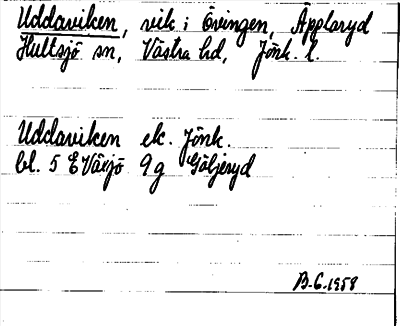 Uddaviken, vik i Övingen, Äpplaryd
Hultsjö sn, Västra hd, Jönk. l.
Uddaviken ek. Jönk.
bl. 5 E Växjö 9g Göljeryd
B-G.1958